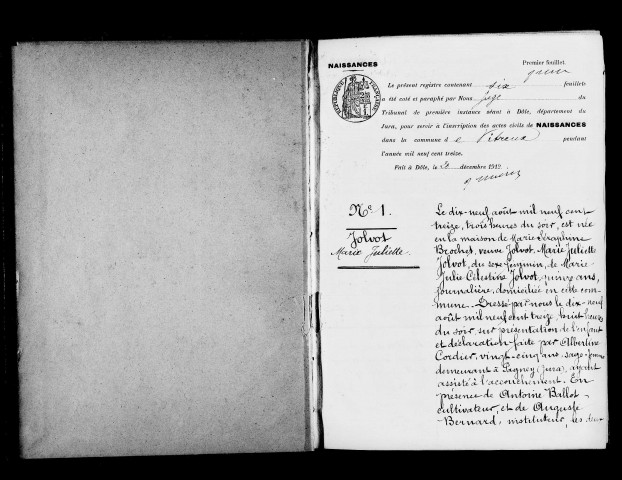 NAISSANCES
Premier feuillet.
Le présent registre contenant six feuillets
a été coté et paraphé par Nous Juge du
Tribunal de première instance séant à Dôle, département du
Jura, pour servir à l'inscription des actes civils de NAISSANCES
dans la commune d e Vitreux pendant
l'année mil neuf cent treize.
Fait à Dôle, le 20 décembre 1912
RÉPUBLIQUE FRANÇAISE
No 1.
Jolvot
Marie Juliette.
Le dix-neuf août mil neuf cent
treize, trois heures du soir, est née
en la maison de Marie Séraphine
Brochet, veuve Jolvot, Marie Juliette
Jolvot, du sexe féminin, de Marie-
Julie Célestine Jolvot, ans,
journalière, domiciliée en cette com-
mune. Dressé par nous le dix-neuf
août mil neuf cent treize, huit heures
du soir sur présentation de l'enfant
et déclaration faite par Albertine
Cordier, vingt-cinq ans, sage-femme
demeurant à Pagney (Jura), ayant
assisté à l'accouchement. En
présence de Antoine Ballot
cultivateur, et de Auguste
Bernard, instituteur, les deux